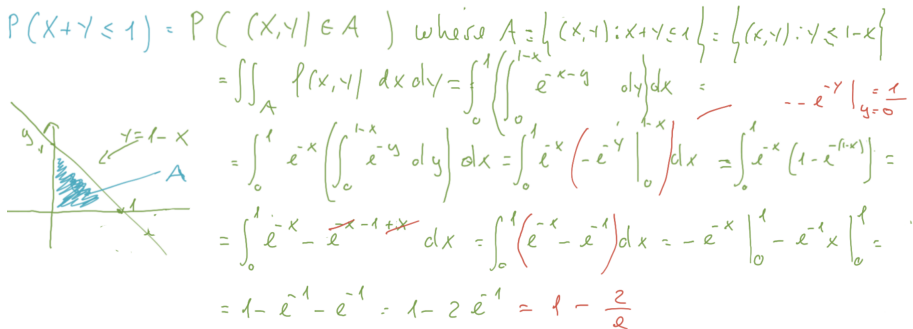 P(X+Y≤1) = P((X,Y)∈A) where A={(x,y): x+y≤1} = {(x,y): y≤1-x}
= ∬_A f(x,y) dxdy = ∫_0^1 (∫_0^{1-x} e^{-x-y} dy) dx =
-- e^{-y} |_{y=0}^{=1}
y
1
y=1-x
A
1
= ∫_0^1 e^{-x} (∫_0^{1-x} e^{-y} dy) dx = ∫_0^1 e^{-x} (-e^{-y} |_0^{1-x}) dx = ∫_0^1 e^{-x} (1-e^{-(1-x)}) =
= ∫_0^1 e^{-x} - e^{-x-1+x} dx = ∫_0^1 (e^{-x} - e^{-1}) dx = -e^{-x} |_0^1 - e^{-1}x |_0^1 =
= 1-e^{-1}-e^{-1} = 1-2e^{-1} = 1-2/e